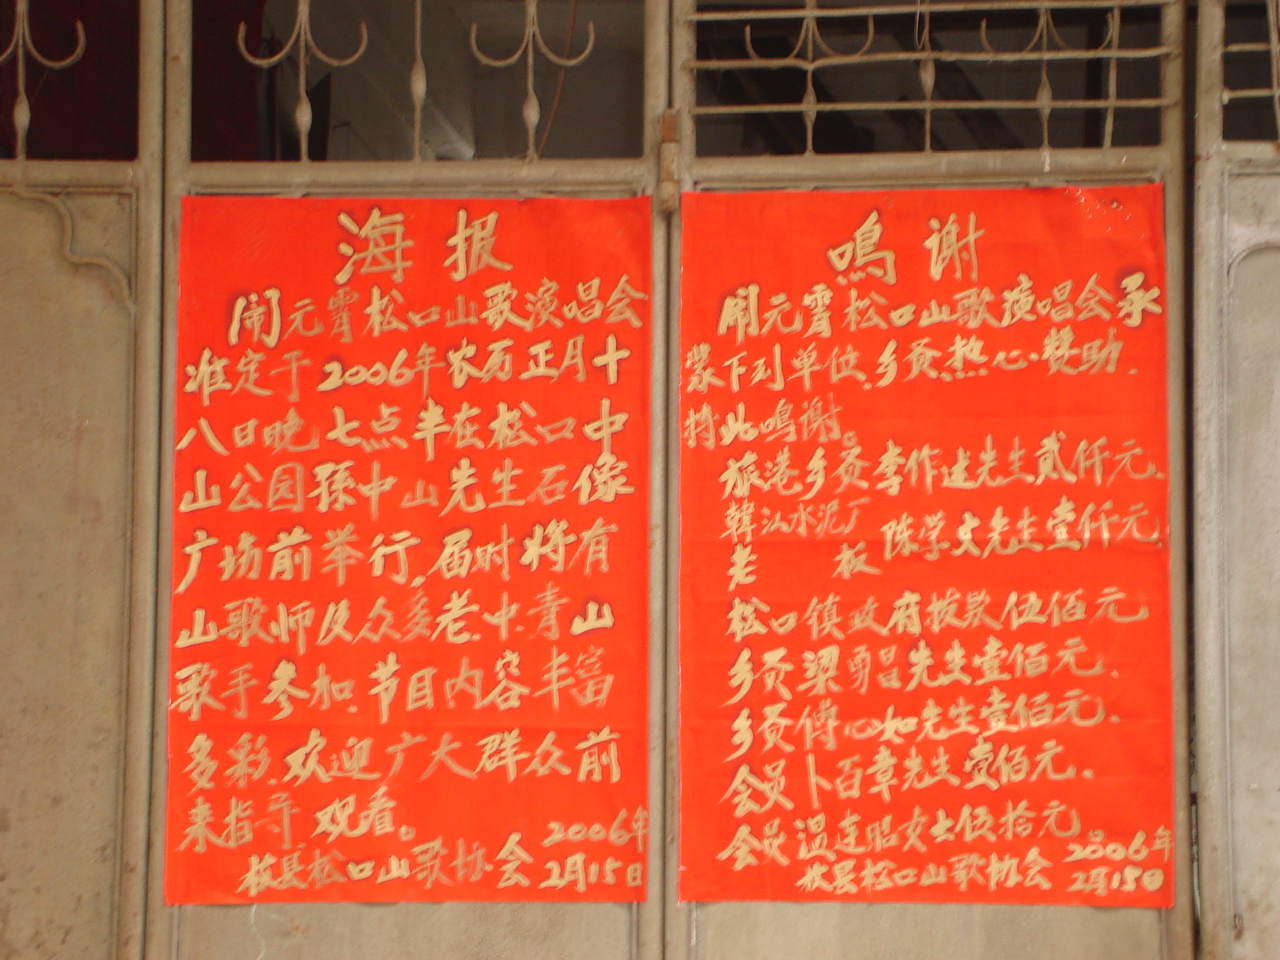 海报
闹元霄松口山歌演唱会
准定于2006年农历正月十
八日晚七点半在松口中
山公园孫中山先生石像
广场前举行,届时将有
山歌师及众多老.中.青山
歌手参加.节目内容丰富
多彩.欢迎广大群众前
来指导.观看。
梅县松口山歌协会
2006年
2月15日
鳴谢
闹元霄松口山歌演唱会承
蒙下列单位.乡贤.热心.赞助.
特此鳴谢。
旅港乡贤李作述先生贰仟元.
韓江水泥厂
老板 陈学文先生壹仟元.
松口镇政府拨款伍佰元
乡贤梁勇昌先生壹佰元.
乡贤傅心如先生壹佰元.
会员卜百章先生壹佰元.
会员温连昭女士伍拾元
梅县松口山歌协会
2006年
2月15日